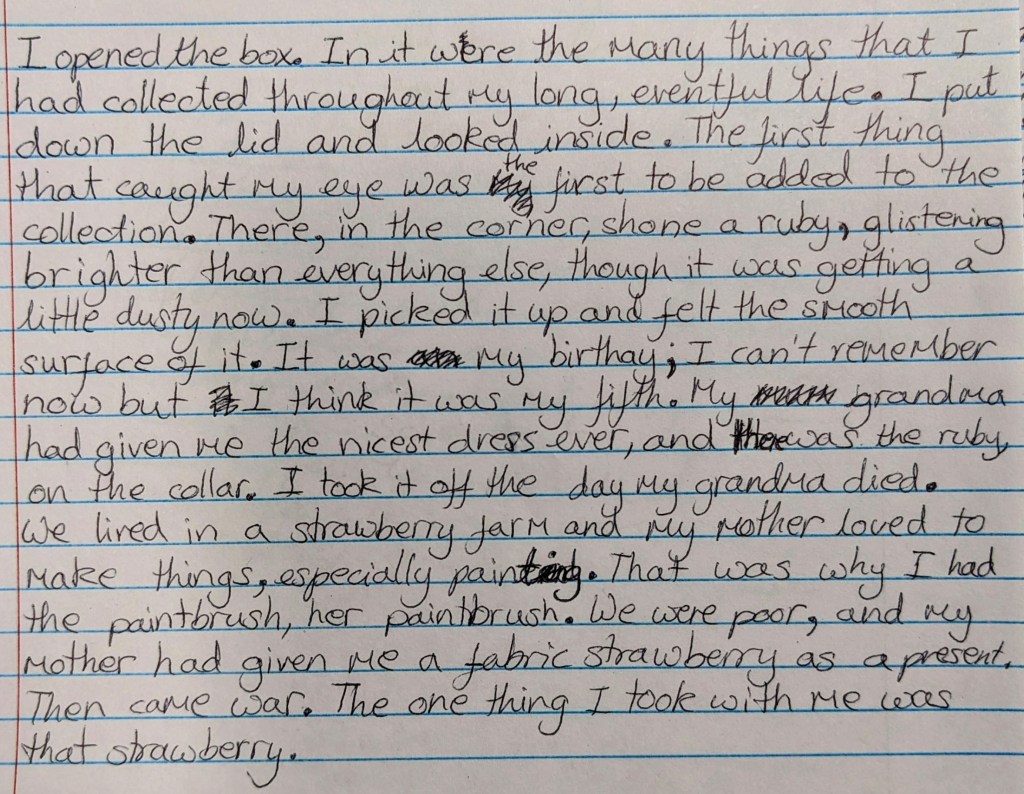 I opened the box. In it were the many things that I
had collected throughout my long, eventful life. I put
down the lid and looked inside. The first thing
that caught my eye was the first to be added to the
collection. There, in the corner, shone a ruby, glistening
brighter than everything else, though it was getting a
little dusty now. I picked it up and felt the smooth
surface of it. It was my birthay; I can't remember
now but I think it was my fifth. My grandma
had given me the nicest dress ever, and there was the ruby,
on the collar. I took it off the day my grandma died.
We lived in a strawberry farm and my mother loved to
make things, especially painting. That was why I had
the paintbrush, her paintbrush. We were poor, and my
mother had given me a fabric strawberry as a present.
Then came war. The one thing I took with me was
that strawberry.